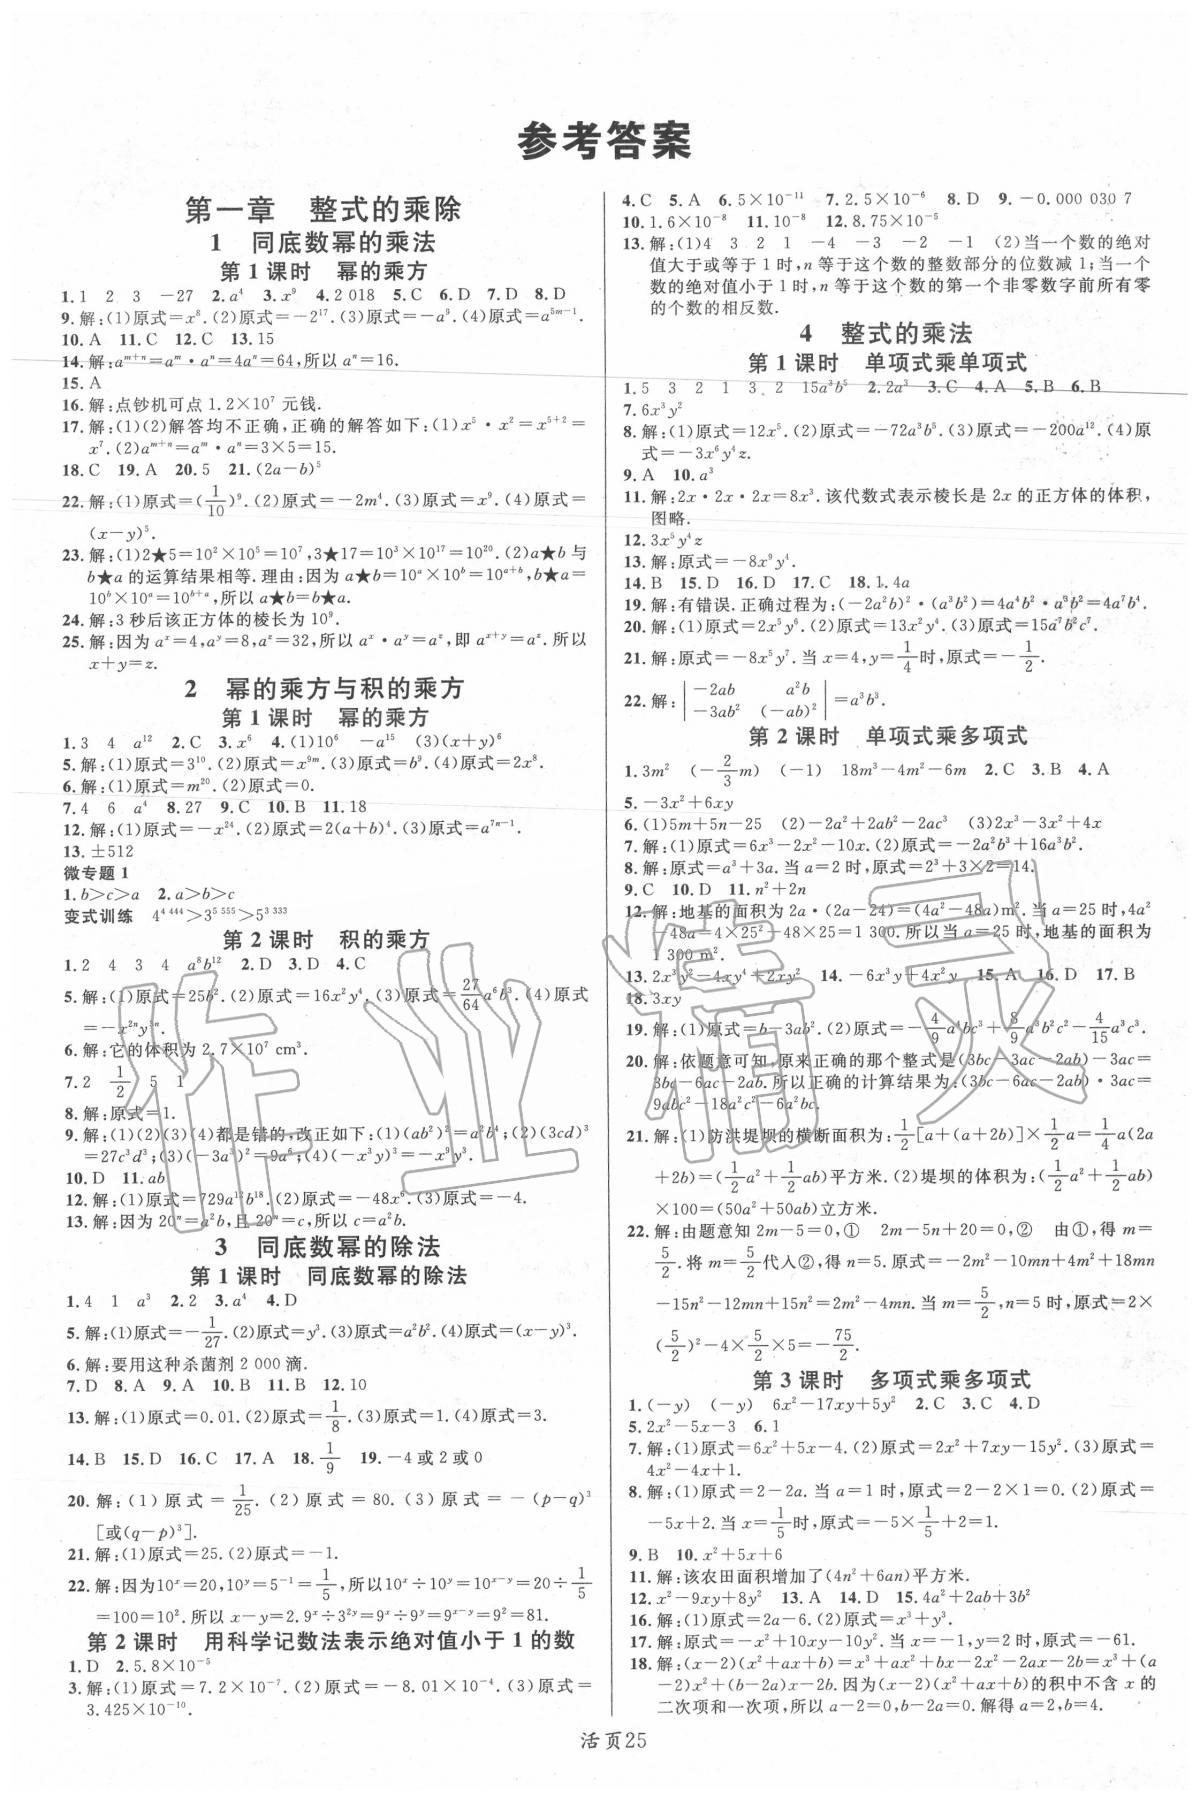 参考答案
第一章 整式的乘除
1 同底数幂的乘法
第1课时 幂的乘方
1.1 2 3 －27 2.a⁴ 3.x⁹ 4.2 018 5.C 6.D 7.D 8.D
9.解:(1)原式=x⁸.(2)原式=－2¹⁷.(3)原式=－a⁹.(4)原式=a⁵ᵐ⁻¹.
10.A 11.C 12.C 13.15
14.解:aᵐ⁺ⁿ=aᵐ·aⁿ=4aⁿ=64,所以aⁿ=16.
15.A
16.解:点钞机可点1.2×10⁷元钱.
17.解:(1)(2)解答均不正确,正确的解答如下:(1)x⁵·x²=x⁵⁺²=
x⁷.(2)aᵐ⁺ⁿ=aᵐ·aⁿ=3×5=15.
18.C 19.A 20.5 21.(2a－b)⁵
22.解:(1)原式=(1/10)⁹.(2)原式=－2m⁴.(3)原式=x⁹.(4)原式=
(x－y)⁵.
23.解:(1)2★5=10²×10⁵=10⁷,3★17=10³×10¹⁷=10²⁰.(2)a★b与
b★a的运算结果相等.理由:因为a★b=10ᵃ×10ᵇ=10ᵃ⁺ᵇ,b★a=
10ᵇ×10ᵃ=10ᵇ⁺ᵃ,所以a★b=b★a.
24.解:3秒后该正方体的棱长为10⁹.
25.解:因为aˣ=4,aʸ=8,aᶻ=32,所以aˣ·aʸ=aᶻ,即aˣ⁺ʸ=aᶻ.所以
x+y=z.
2 幂的乘方与积的乘方
第1课时 幂的乘方
1.3 4 a¹² 2.C 3.x⁶ 4.(1)10⁶ －a¹⁵ (3)(x+y)⁶
5.解:(1)原式=3¹⁰.(2)原式=x⁹ᵐ.(3)原式=b⁹.(4)原式=2x⁸.
6.解:(1)原式=m²⁰.(2)原式=0.
7.4 6 a⁴ 8.27 9.C 10.B 11.18
12.解:(1)原式=－x²⁴.(2)原式=2(a+b)⁴.(3)原式=a⁷ⁿ⁻¹.
13.±512
微专题1
1.b>c>a 2.a>b>c
变式训练 4⁴ ⁴⁴⁴>3⁵ ⁵⁵⁵>5³ ³³³
第2课时 积的乘方
1.2 4 3 4 a⁸b¹² 2.D 3.D 4.C
5.解:(1)原式=25b².(2)原式=16x²y⁴.(3)原式=27/64a⁶b³.(4)原式
=－x²ⁿy³ⁿ.
6.解:它的体积为2.7×10⁷ cm³.
7.2 1/2 5 1
8.解:原式=1.
9.解:(1)(2)(3)(4)都是错的,改正如下:(1)(ab²)²=a²b⁴;(2)(3cd)³
=27c³d³;(3)(－3a³)²=9a⁶;(4)(－x³y)³=－x⁹y³.
10.D 11.ab
12.解:(1)原式=729a¹²b¹⁸.(2)原式=－48x⁶.(3)原式=－4.
13.解:因为20ⁿ=a²b,且20ⁿ=c,所以c=a²b.
3 同底数幂的除法
第1课时 同底数幂的除法
1.4 1 a³ 2.2 3.a⁴ 4.D
5.解:(1)原式=－1/27.(2)原式=y³.(3)原式=a²b².(4)原式=(x－y)³.
6.解:要用这种杀菌剂2 000滴.
7.D 8.A 9.A 10.B 11.B 12.10
13.解:(1)原式=0.01.(2)原式=1/8.(3)原式=1.(4)原式=3.
14.B 15.D 16.C 17.A 18.1/9 19.－4或2或0
20.解:(1)原式=1/25.(2)原式=80.(3)原式=－(p－q)³
[或(q－p)³].
21.解:(1)原式=25.(2)原式=－1.
22.解:因为10ˣ=20,10ʸ=5⁻¹=1/5,所以10ˣ÷10ʸ=10ˣ⁻ʸ=20÷1/5
=100=10².所以x－y=2.9ˣ÷3²ʸ=9ˣ÷9ʸ=9ˣ⁻ʸ=9²=81.
第2课时 用科学记数法表示绝对值小于1的数
1.D 2.5.8×10⁻⁵
3.解:(1)原式=7.2×10⁻⁷.(2)原式=－8.01×10⁻⁴.(3)原式=
3.425×10⁻¹⁰.
4.C 5.A 6.5×10⁻¹¹ 7.2.5×10⁻⁶ 8.D 9.－0.000 030 7
10.1.6×10⁻⁸ 11.10⁻⁸ 12.8.75×10⁻⁵
13.解:(1)4 3 2 1 －4 －3 －2 －1 (2)当一个数的绝对
值大于或等于1时,n等于这个数的整数部分的位数减1;当一个
数的绝对值小于1时,n等于这个数的第一个非零数字前所有零
的个数的相反数.
4 整式的乘法
第1课时 单项式乘单项式
1.5 3 2 1 3 2 15a³b⁵ 2.2a³ 3.C 4.A 5.B 6.B
7.6x³y²
8.解:(1)原式=12x⁵.(2)原式=－72a³b⁵.(3)原式=－200a¹².(4)原
式=－3x⁶y⁴z.
9.A 10.a³
11.解:2x·2x·2x=8x³.该代数式表示棱长是2x的正方体的体积,
图略.
12.3x⁵y⁴z
13.解:原式=－8x⁹y⁴.
14.B 15.D 16.D 17.C 18.1.4a
19.解:有错误.正确过程为:(－2a²b)²·(a³b²)=4a⁴b²·a³b²=4a⁷b⁴.
20.解:(1)原式=2x⁵y⁶.(2)原式=13x²y⁴.(3)原式=15a⁷b²c⁷.
21.解:原式=－8x⁵y⁷.当x=4,y=1/4时,原式=－1/2.
22.解:|－2ab a²b
－3ab² (－ab)²|=a³b³.
第2课时 单项式乘多项式
1.3m² (－2/3m) (－1) 18m³－4m²－6m 2.C 3.B 4.A
5.－3x²+6xy
6.(1)5m+5n－25 (2)－2a²+2ab²－2ac³ (3)2x³－3x²+4x
7.解:(1)原式=6x³－2x²－10x.(2)原式=－2a²b³+16a²b².
8.解:原式=a³+3a.当a=2时,原式=2³+3×2=14.
9.C 10.D 11.n²+2n
12.解:地基的面积为2a·(2a－24)=(4a²－48a)m².当a=25时,4a²
－48a=4×25²－48×25=1 300.所以当a=25时,地基的面积为
1 300 m².
13.2x³y²－4xy⁴+2xy² 14.－6x³y+4x²y 15.A 16.D 17.B
18.3xy
19.解:(1)原式=b－3ab².(2)原式=－4/9a⁴bc³+8/9a³b²c²－4/15a³c³.
20.解:依题意可知,原来正确的那个整式是(3bc－3ac－2ab)－3ac=
3bc－6ac－2ab.所以正确的计算结果为:(3bc－6ac－2ab)·3ac=
9abc²－18a²c²－6a²bc.
21.解:(1)防洪堤坝的横断面积为:1/2[a+(a+2b)]×1/2a=1/4a(2a
+2b)=(1/2a²+1/2ab)平方米.(2)堤坝的体积为:(1/2a²+1/2ab)
×100=(50a²+50ab)立方米.
22.解:由题意知2m－5=0,① 2m－5n+20=0,② 由①,得m=
5/2.将m=5/2代入②,得n=5.原式=－2m²－10mn+4m²+18mn
－15n²－12mn+15n²=2m²－4mn.当m=5/2,n=5时,原式=2×
(5/2)²－4×5/2×5=－75/2.
第3课时 多项式乘多项式
1.(－y) (－y) 6x²－17xy+5y² 2.C 3.C 4.D
5.2x²－5x－3 6.1
7.解:(1)原式=6x²+5x－4.(2)原式=2x²+7xy－15y².(3)原式=
4x²－4x+1.
8.解:(1)原式=2－2a.当a=1时,原式=2－2×1=0.(2)原式=
－5x+2.当x=1/5时,原式=－5×1/5+2=1.
9.B 10.x²+5x+6
11.解:该农田面积增加了(4n²+6an)平方米.
12.x²－9xy+8y² 13.A 14.D 15.4a²+2ab+3b²
16.解:(1)原式=2a－6.(2)原式=x³+y³.
17.解:原式=－x²+10xy－10y².当x=－1,y=2时,原式=－61.
18.解:(x－2)(x²+ax+b)=x³+ax²+bx－2x²－2ax－2b=x³+(a
－2)x²+(b－2a)x－2b.因为(x－2)(x²+ax+b)的积中不含x的
二次项和一次项,所以a－2=0,b－2a=0.解得a=2,b=4.
活页25
作业精灵